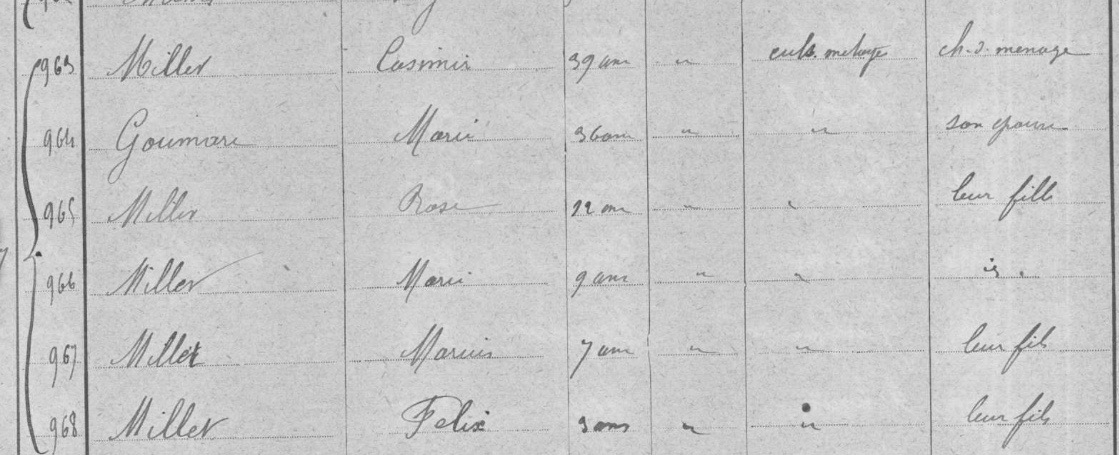 963 Miller Casimir 39 ans " cult. metayer ch. d. menage
964 Goumare Marie 36 ans " " son epouse
965 Miller Rose 12 ans " " leur fille
966 Miller Marie 9 ans " " id.
967 Millet Marius 7 ans " " leur fils
968 Miller Felix 3 ans " " leur fils